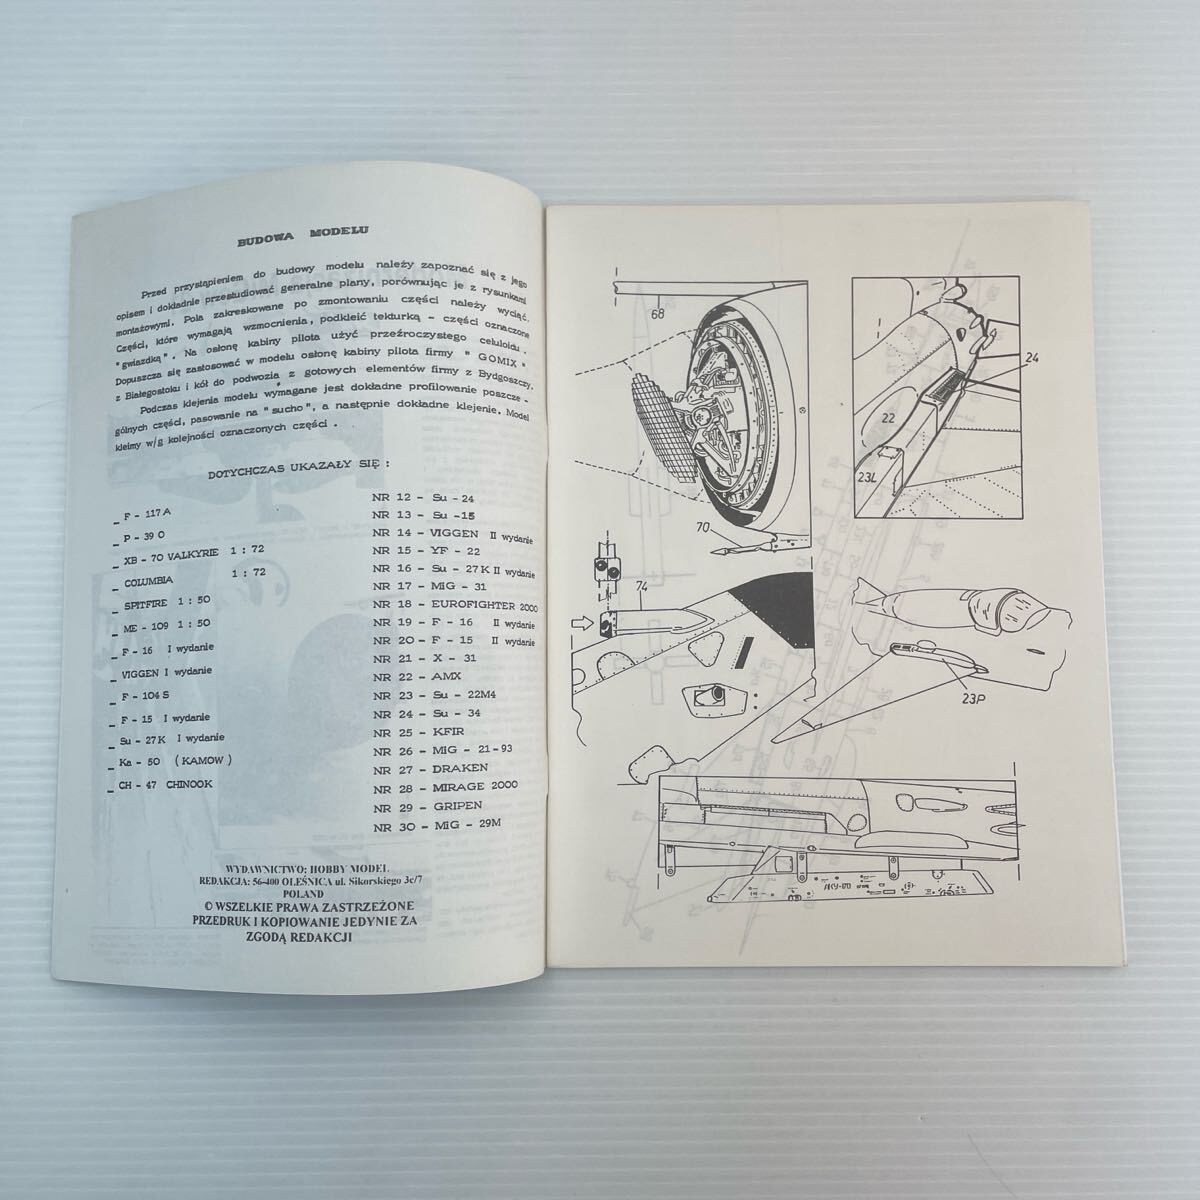 BUDOWA MODELU
Przed przystąpieniem do budowy modelu należy zapoznać się z jego
opisem i dokładnie przestudiować generalne plany, porównując je z rysunkami
montażowymi. Pola zakreskowane po zmontowaniu części należy wyciąć.
Części, które wymagają wzmocnienia, podkleić tekturką - części oznaczone
"gwiazdką". Na osłonę kabiny pilota użyć przeźroczystego celuloidu.
Dopuszcza się zastosować w modelu osłonę kabiny pilota firmy "GOMIX"
z Białegostoku i kół do podwozia z gotowych elementów firmy z Bydgoszczy.
Podczas klejenia modelu wymagane jest dokładne profilowanie poszcze -
gólnych części, pasowanie na "sucho", a następnie dokładne klejenie. Model
kleimy w/g kolejności oznaczonych części .
DOTYCHCZAS UKAZAŁY SIĘ :
_ F - 117 A
_ P - 39 O
_ XB - 70 VALKYRIE 1 : 72
_ COLUMBIA 1 : 72
_ SPITFIRE 1 : 50
_ ME - 109 1 : 50
_ F - 16 I wydanie
_ VIGGEN I wydanie
_ F - 104 S
_ F - 15 I wydanie
_ Su - 27 K I wydanie
_ Ka - 50 (KAMOW)
_ CH - 47 CHINOOK
NR 12 - Su - 24
NR 13 - Su - 15
NR 14 - VIGGEN II wydanie
NR 15 - YF - 22
NR 16 - Su - 27 K II wydanie
NR 17 - MiG - 31
NR 18 - EUROFIGHTER 2000
NR 19 - F - 16 II wydanie
NR 20 - F - 15 II wydanie
NR 21 - X - 31
NR 22 - AMX
NR 23 - Su - 22M4
NR 24 - Su - 34
NR 25 - KFIR
NR 26 - MiG - 21 - 93
NR 27 - DRAKEN
NR 28 - MIRAGE 2000
NR 29 - GRIPEN
NR 30 - MiG - 29M
WYDAWNICTWO: HOBBY MODEL
REDAKCJA: 56-400 OLEŚNICA ul. Sikorskiego 3c/7
POLAND
© WSZELKIE PRAWA ZASTRZEŻONE
PRZEDRUK I KOPIOWANIE JEDYNIE ZA
ZGODĄ REDAKCJI
68
70
74
24
22
23L
23P